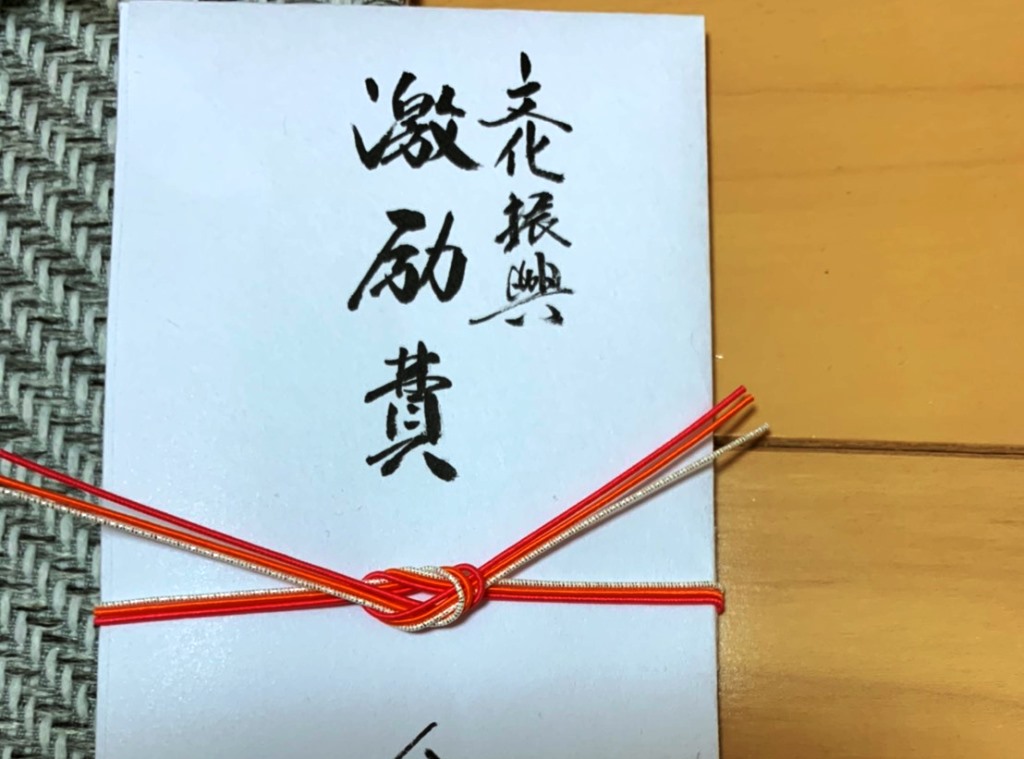 文化振興
激励費